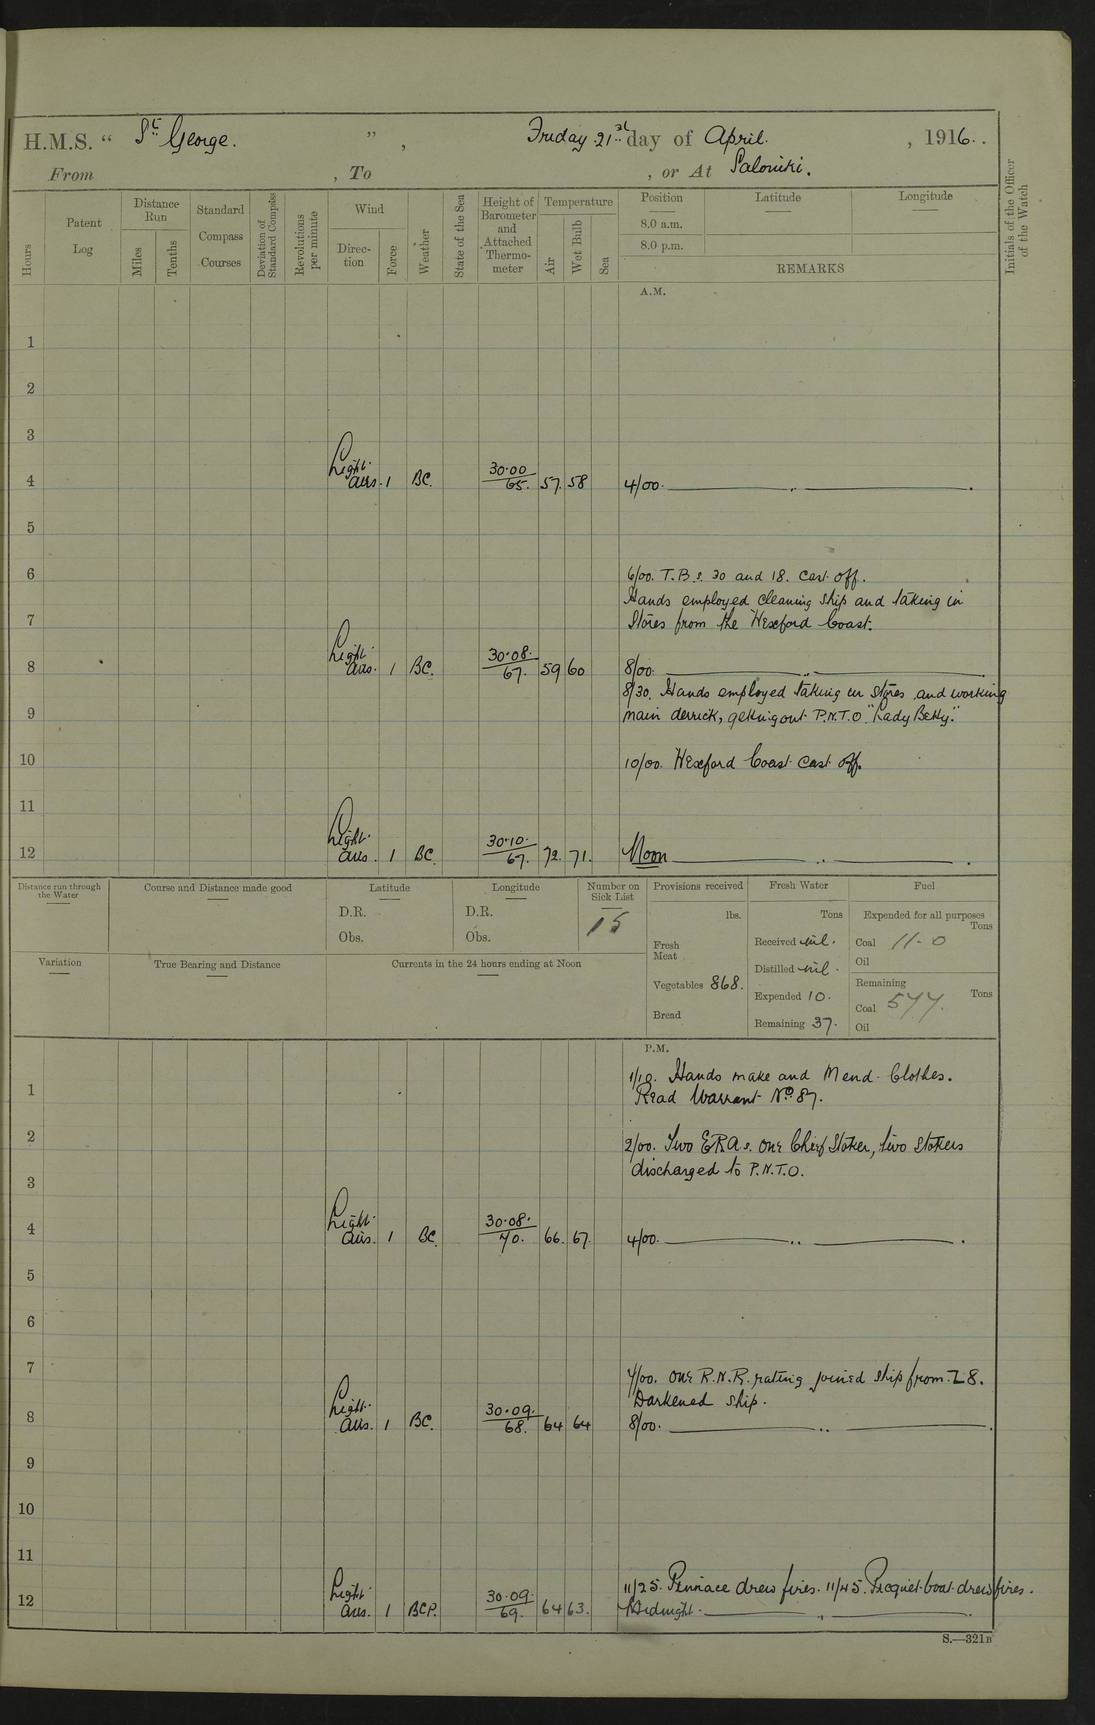 H.M.S. “ St George. ” , Friday 21st day of April. , 1916.
From , To , or At Saloniki.
Hours
Patent Log
Distance Run
Miles
Tenths
Standard Compass Courses
Deviation of Standard Compass
Revolutions per minute
Wind
Direction
Force
Weather
State of the Sea
Height of Barometer and Attached Thermometer
Temperature
Air
Wet Bulb
Sea
Position Latitude Longitude
8.0 a.m.
8.0 p.m.
REMARKS
Initials of the Officer of the Watch
A.M.
1
2
3
4 Light airs. 1 BC. 30.00/65. 57. 58 4/00. ———— ,, ————.
5
6 6/00. T.B.s. 30 and 18. Cast off.
Hands employed cleaning ship and taking in
7 Stores from the Wexford Coast.
8 Light airs. 1 BC. 30.08./67. 59 60 8/00. ———— ,, ————
8/30. Hands employed taking in stores and working
9 main derrick, getting out P.N.T.O "Lady Betty."
10 10/00. Wexford Coast cast off.
11
12 Light airs. 1 BC. 30.10./67. 72. 71. Noon ———— ,, ————.
Distance run through the Water
Course and Distance made good
Latitude
D.R.
Obs.
Longitude
D.R.
Obs.
Number on Sick List
15
Provisions received
lbs.
Fresh Meat
Vegetables 868.
Bread
Fresh Water
Tons
Received nil.
Distilled nil.
Expended 10.
Remaining 37.
Fuel
Expended for all purposes
Tons
Coal 11.0
Oil
Remaining
Tons
Coal 577.
Oil
Variation
True Bearing and Distance
Currents in the 24 hours ending at Noon
P.M.
1 1/10. Hands make and Mend Clothes.
Read Warrant No. 87.
2 2/00. Two ERAs. one Chief Stoker, two Stokers
discharged to P.N.T.O.
3
4 Light airs. 1 BC. 30.08./70. 66. 67. 4/00. ———— ,, ————.
5
6
7 7/00. one R.N.R. rating joined ship from L8.
Darkened ship.
8 Light airs. 1 BC. 30.09./68. 64 64 8/00. ———— ,, ————.
9
10
11
11/25. Pinnace drew fires. 11/45. Picquet boat drew fires.
12 Light airs. 1 BCP. 30.09./69. 64 63. Midnight. ———— ,, ————.
S.—321B